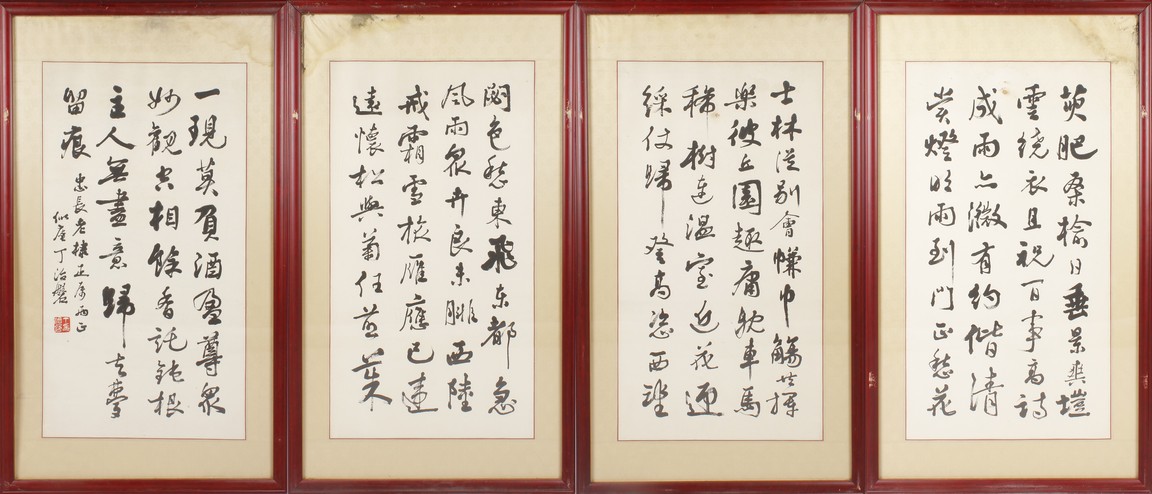 萸肥桑榆日垂景與塏
雲繞衣且祝百事高詩
成雨亦澂有約偕清
賞燈昨雨到門正愁花
士林從別會巾觴共揮
樂彼丘園趣庸耽車馬
稀樹連溫室近花迎
綵仗歸登高恣西望
色愁東飛東都急
風雨眾卉良未腓西陸
戒霜雪旅雁應已違
遠懷松與菊任
一現莫負酒盈尊眾
妙觀空相餘香託鈍根
主人無盡意歸去夢
留痕
忠長老棣正屬兩正
似庵丁治磐